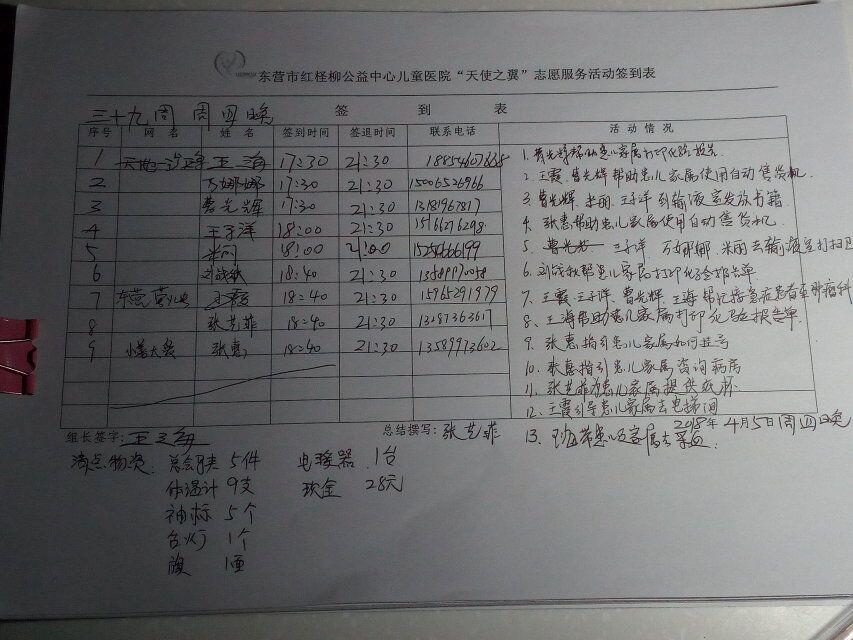 东营市红柽柳公益中心儿童医院“天使之翼”志愿服务活动签到表
三十九周 周四晚 签到表
序号 网名 姓名 签到时间 签退时间 联系电话 活动情况
1 王海 17:30 21:30
2 万娜娜 17:30 21:30 15006526966
3 曹光辉 17:30 21:30 13181967817
4 王子洋 18:00 21:30
5 米丽 18:00 21:00
6 刘战秋 18:40 21:30
7 王霞 18:40 21:30 15965291979
8 张芝菲 18:40 21:30 13287363617
9 张惠 18:40 21:30 13589973602
1. 曹光辉帮助患儿家属打印化验报告
2. 王霞、曹光辉帮助患儿家属使用自动售货机.
3 曹光辉、米丽、王子洋到输液室发放书籍
4. 张惠帮助患儿家属使用自动售货机.
5. 王子洋、万娜娜、米丽去输液室打扫卫
6. 刘战秋帮患儿家属打印化验报告单
7. 王霞、王子洋、曹光辉、王海
8、王海帮助患儿家属打印化验报告单.
9. 张惠指引患儿家属如何挂号
10. 张惠指引患儿家属咨询病房
11. 张芝菲为患儿家属提供纸杯
12. 王霞引导患儿家属去电梯间
13. 患儿及家属去采血
组长签字: 总结撰写: 张芝菲 2018年4月5日周四晚
清点物资: 5件 电暖器 1台
体温计 9支 现金 28元
袖标 5个
台灯 1个